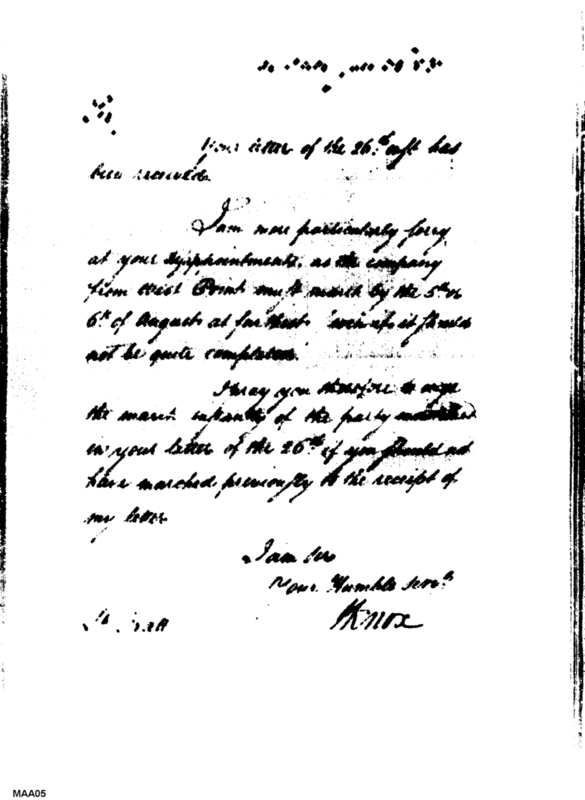 Sir
Your letter of the 26th inst has
been received.
I am more particularly sorry
at your disappointments, as the company
from West Point must march by the 5th or
6th of August at farthest it should
not be quite completed.
I pray you therefore to urge
the march instantly of the party
in your letter of the 26th if you should not
have marched previously to the receipt of
my letter
I am Sir
Your Humble Servt
HKnox
MAA05